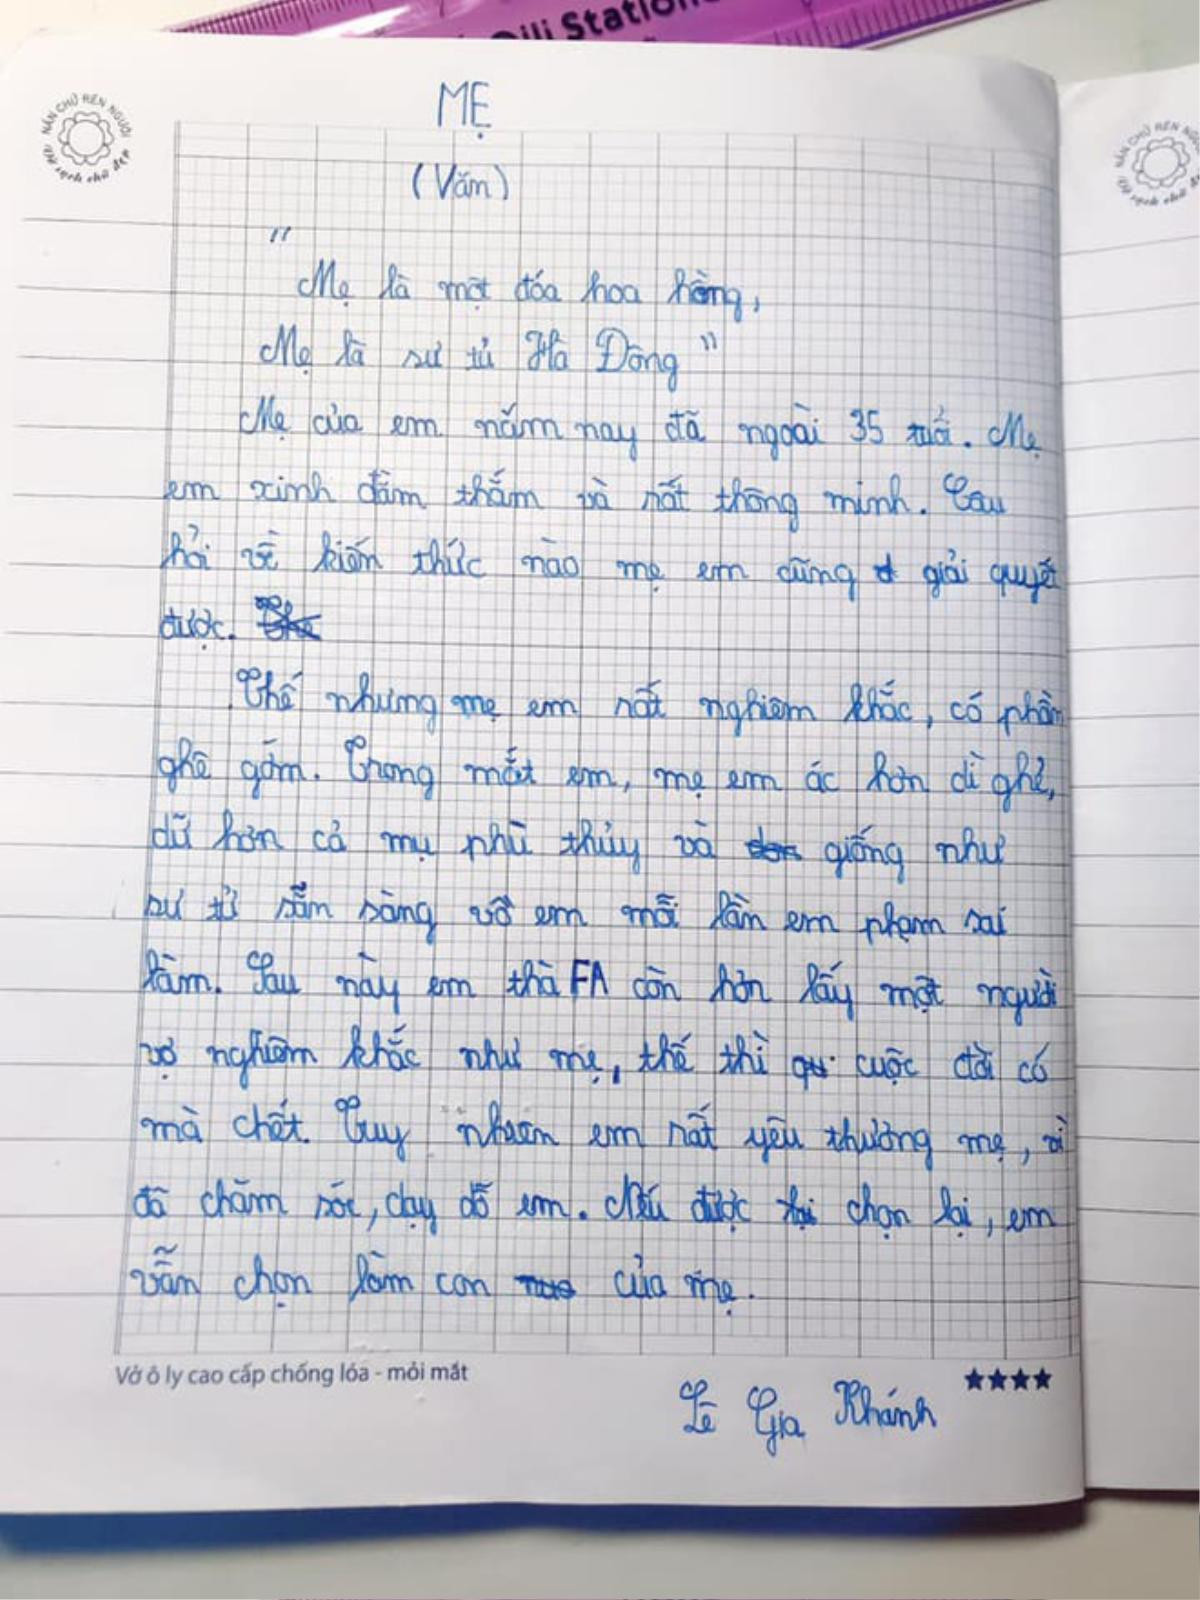 Qili Station
NẮN CHỮ RÈN NGƯỜI
NẮN CHỮ RÈN NGƯỜI
MẸ
(Văn)
"
Mẹ là một đóa hoa hồng,
Mẹ là sư tử Hà Đông"
Mẹ của em năm nay đã ngoài 35 tuổi. Mẹ
em xinh đằm thắm và rất thông minh. Câu
hỏi về kiến thức nào mẹ em cũng giải quyết
được.
Thế nhưng mẹ em rất nghiêm khắc, có phần
ghê gớm. Trong mắt em, mẹ em ác hơn dì ghẻ,
dữ hơn cả mụ phù thủy và giống như
sư tử sẵn sàng vồ em mỗi lần em phạm sai
lầm. Sau này em thà FA còn hơn lấy một người
vợ nghiêm khắc như mẹ, thế thì cuộc đời có
mà chết. Tuy nhiên em rất yêu thương mẹ, vì
đã chăm sóc, dạy dỗ em. Nếu được chọn lại, em
vẫn chọn làm con của mẹ.
Vở ô ly cao cấp chống lóa - mỏi mắt
Lê Gia Khánh